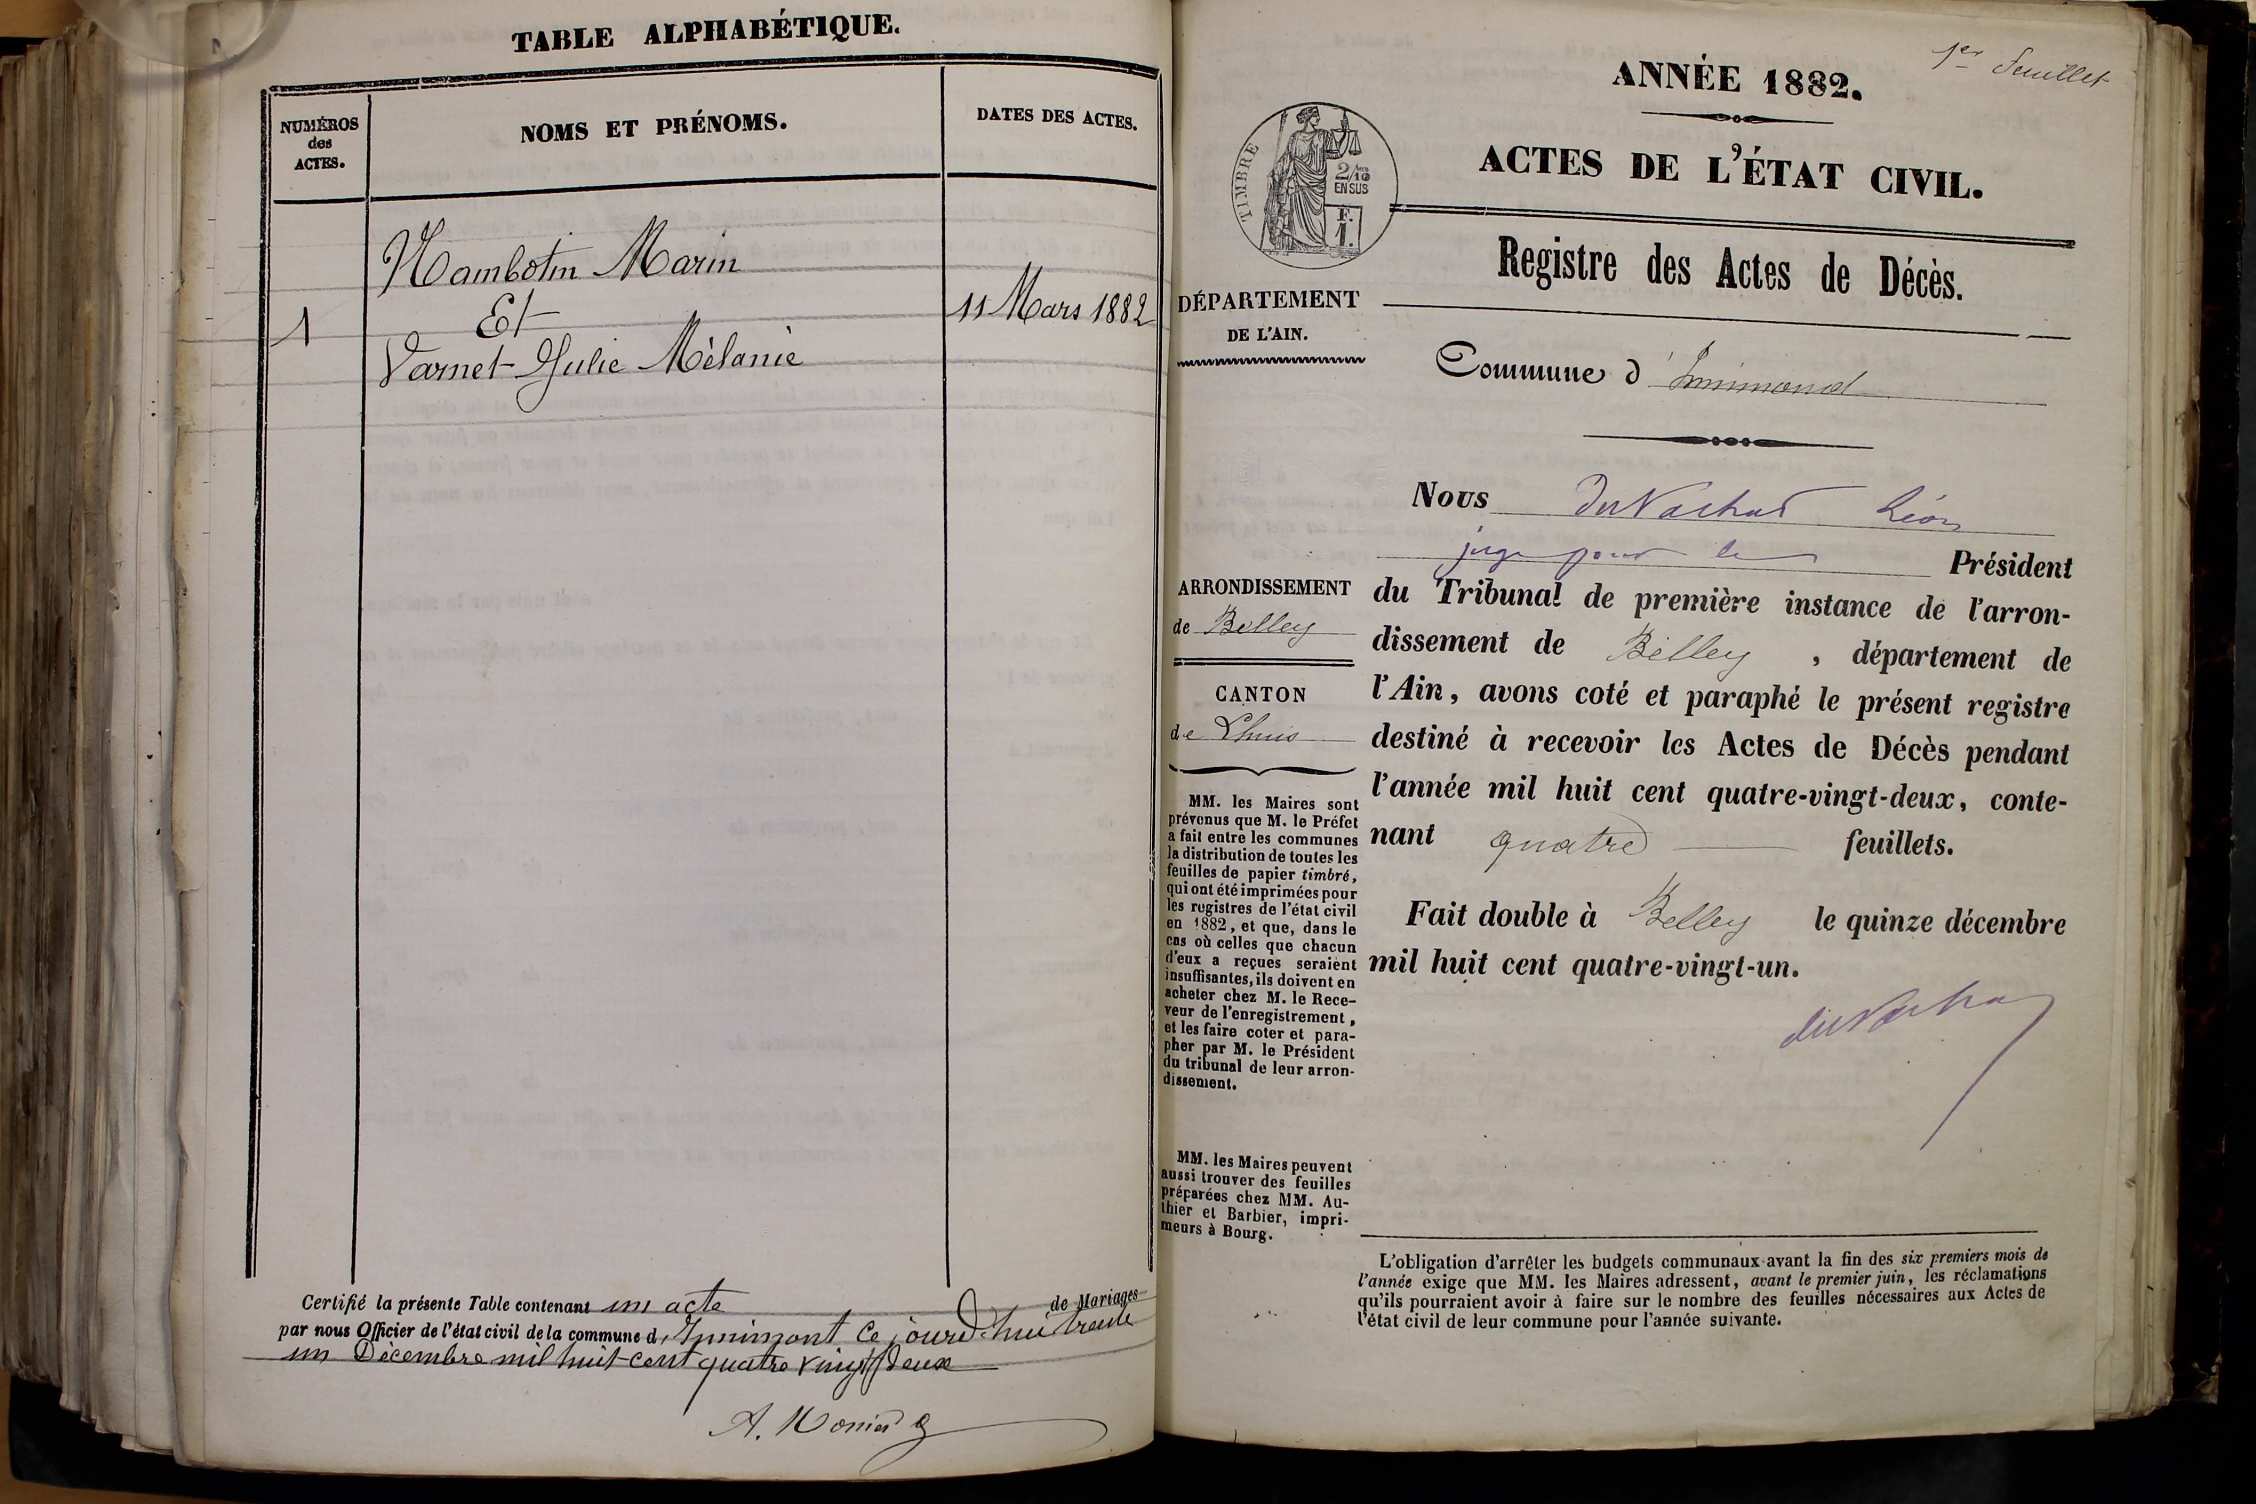 TABLE ALPHABÉTIQUE.
NUMÉROS
des
ACTES.
NOMS ET PRÉNOMS.
DATES DES ACTES.
Marin
Et
1
11 Mars 1882
Varnet Julie Mélanie
Certifié la présente Table contenant un acte de Mariages
par nous Officier de l'état civil de la commune d'Innimont Ce jourd'hui trente
un Décembre mil huit cent quatre vingt deux
A.
1er feuillet
ANNÉE 1882.
ACTES DE L'ÉTAT CIVIL.
TIMBRE
2/10
EN SUS
F.
1.
Registre des Actes de Décès.
DÉPARTEMENT
DE L'AIN.
Commune d'Innimond
Nous Léon
juge pour le Président
ARRONDISSEMENT
de Belley
CANTON
de Lhuis
du Tribunal de première instance de l'arron-
dissement de Belley, département de
l'Ain, avons coté et paraphé le présent registre
destiné à recevoir les Actes de Décès pendant
l'année mil huit cent quatre-vingt-deux, conte-
nant quatre feuillets.
Fait double à Belley le quinze décembre
mil huit cent quatre-vingt-un.
MM. les Maires sont
prévenus que M. le Préfet
a fait entre les communes
la distribution de toutes les
feuilles de papier timbré,
qui ont été imprimées pour
les registres de l'état civil
en 1882, et que, dans le
cas où celles que chacun
d'eux a reçues seraient
insuffisantes, ils doivent en
acheter chez M. le Rece-
veur de l'enregistrement,
et les faire coter et para-
pher par M. le Président
du tribunal de leur arron-
dissement.
MM. les Maires peuvent
aussi trouver des feuilles
préparées chez MM. Au-
thier et Barbier, impri-
meurs à Bourg.
L'obligation d'arrêter les budgets communaux avant la fin des six premiers mois de
l'année exige que MM. les Maires adressent, avant le premier juin, les réclamations
qu'ils pourraient avoir à faire sur le nombre des feuilles nécessaires aux Actes de
l'état civil de leur commune pour l'année suivante.